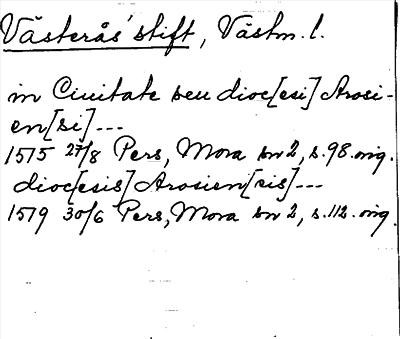 Västerås stift, Västm. l.
in Ciuitate seu dioc[esi] Arosi-
en[si] ---
1575 27/8 Pers, Mora bn 2, s. 98. orig.
dioc[esis] Arosien[sis] ---
1579 30/6 Pers, Mora bn 2, s. 112. orig.